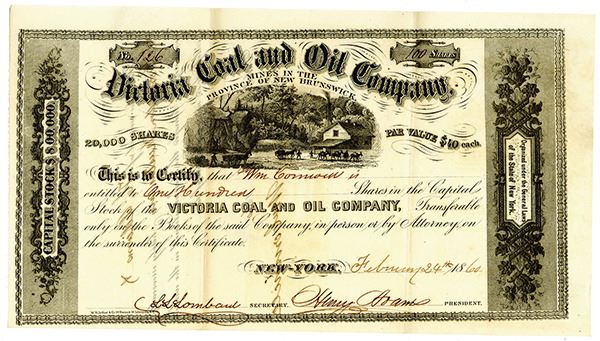 No. 126
100 Shares
Victoria Coal and Oil Company.
MINES IN THE
PROVINCE OF NEW BRUNSWICK
20,000 SHARES
PAR VALUE $40 each.
CAPITAL STOCK $800000
Organized under the General Laws
of the State of New York.
This is to Certify, that Wm Cornwell is
entitled to One Hundred Shares in the Capital
Stock of the VICTORIA COAL AND OIL COMPANY, Transferable
only on the Books of the said Company, in person or by Attorney, on
the surrender of this Certificate.
NEW-YORK, February 24th 1860
Lombard SECRETARY. Henry Adams PRESIDENT.